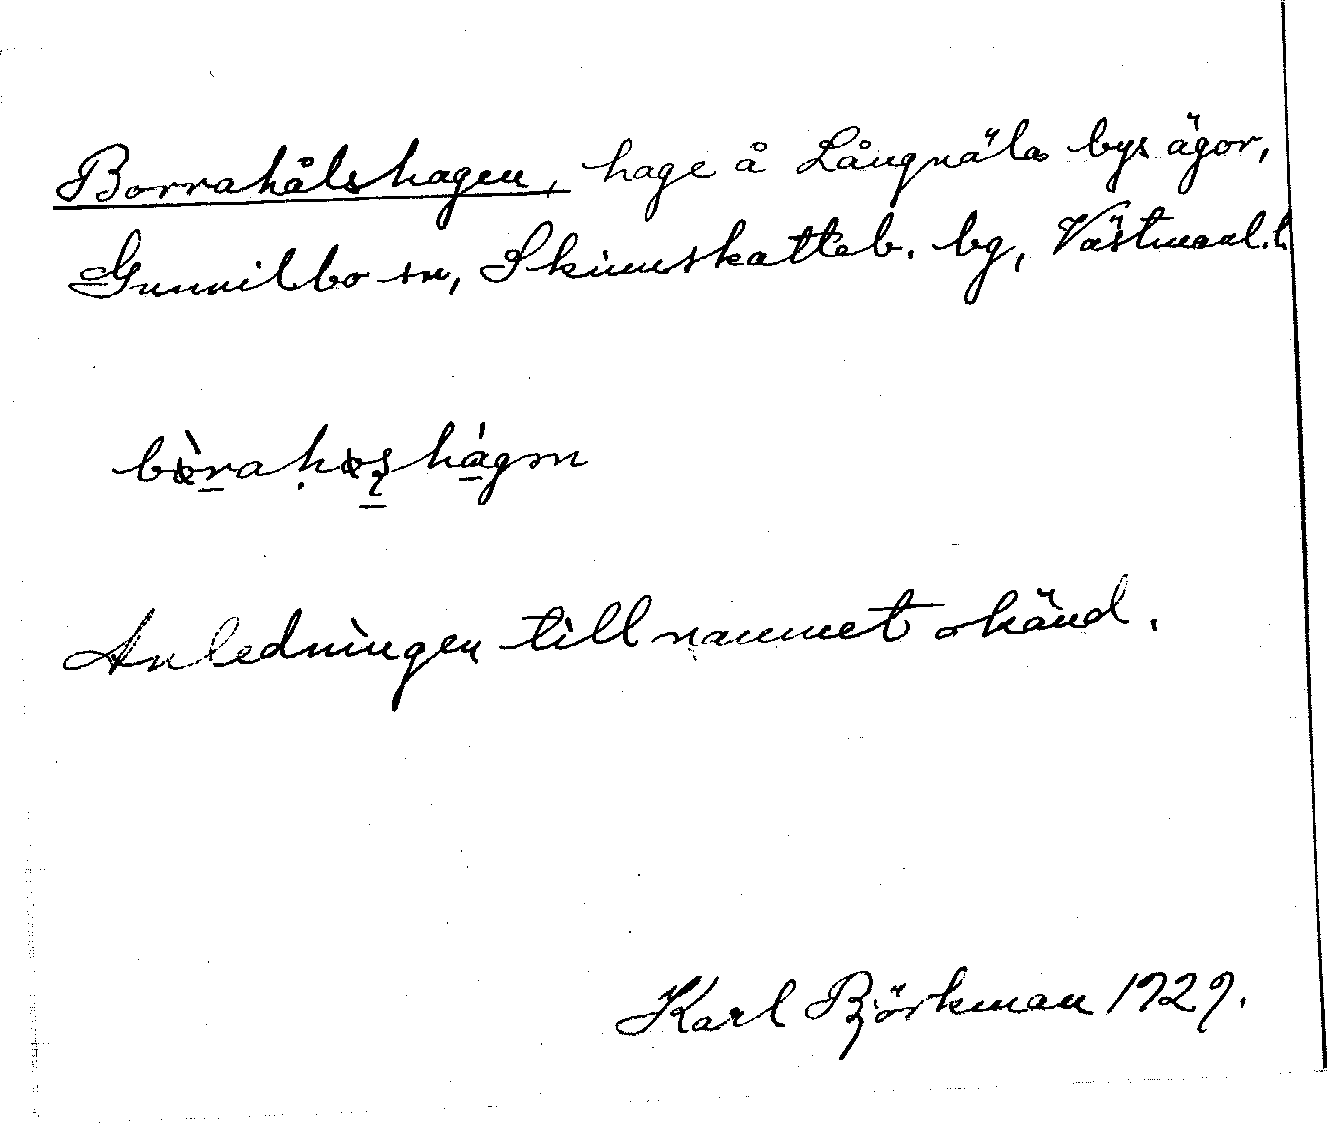 Borrahålshagen, hage å Långnäla bys ägor,
Gunnilbo sn, Skinnskatteb. bg, Västmanl. l.
Anledningen till namnet okänd.
Karl Björkman 1929.